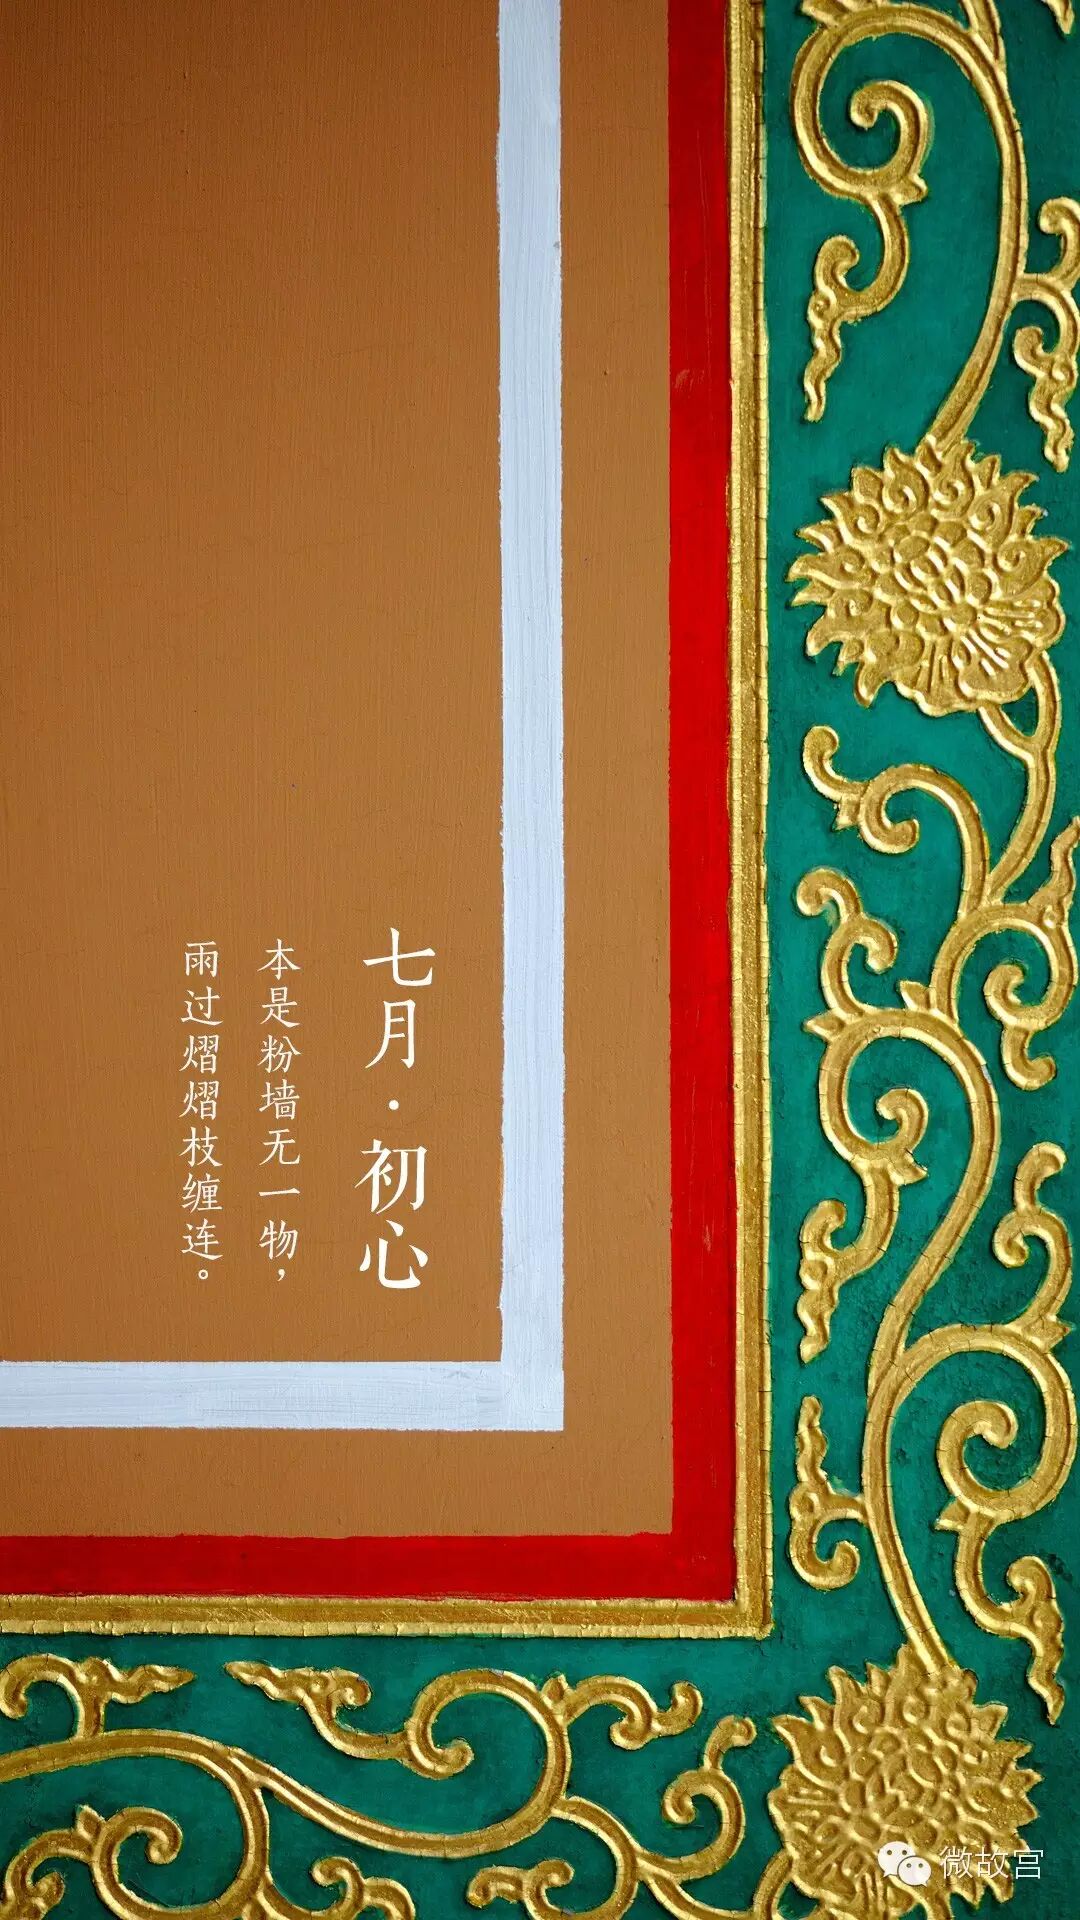 七月·初心
本是粉墙无一物，
雨过熠熠枝缠连。
微故宫